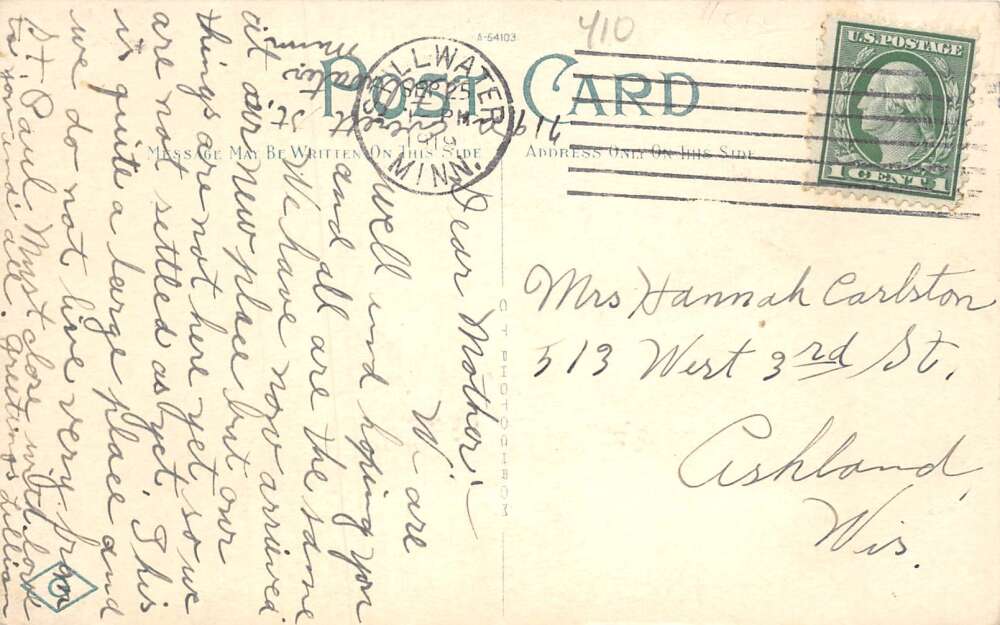 410
A-64103
POST CARD
MESSAGE MAY BE WRITTEN ON THIS SIDE
ADDRESS ONLY ON THIS SIDE
STILLWATER
SEP 25
PM
MINN.
U.S. POSTAGE
1 CENT 1
719
St.
Stillwater
Minn
Dear Mother:—
We are
well and hoping you
and all are the same
We have now arrived
at our new place but our
things are not here yet so we
are not settled as yet. This
is quite a large place and
we do not live very far from
St. Paul. Must close with love
to you and all. Greetings Lillian
C T PHOTOCHROM
Mrs Hannah Carlston
513 West 3rd St.
Ashland,
Wis.